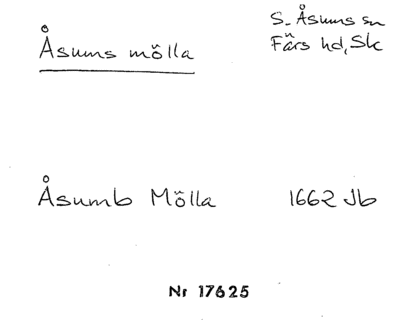 Åsums mölla
S. Åsums sn
Färs hd, Sk
Åsumb Mölla 1662 Jb
Nr 17625